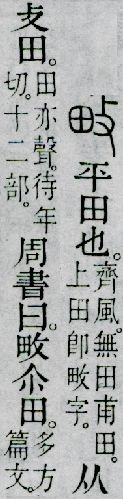 畋平田也。齊風。無田甫田。上田卽畋字。从
攴田。田亦聲。待年切。十二部。周書曰。畋尒田。多方篇文。